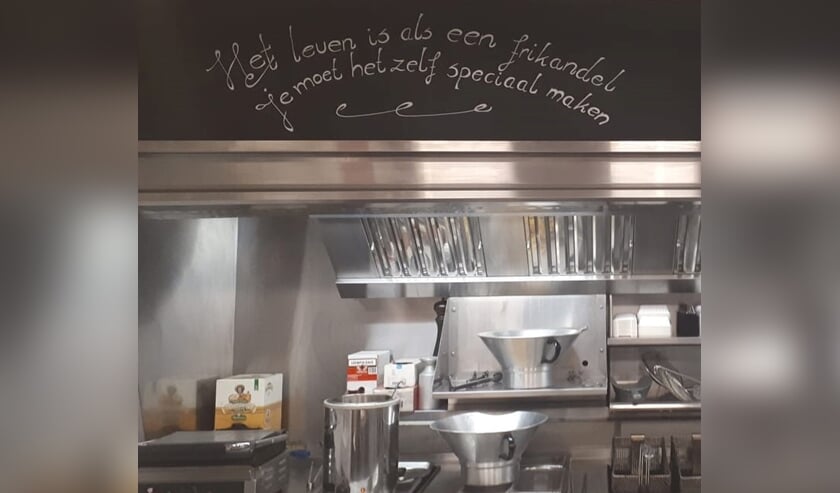 Het leven is als een frikandel
je moet het zelf speciaal maken